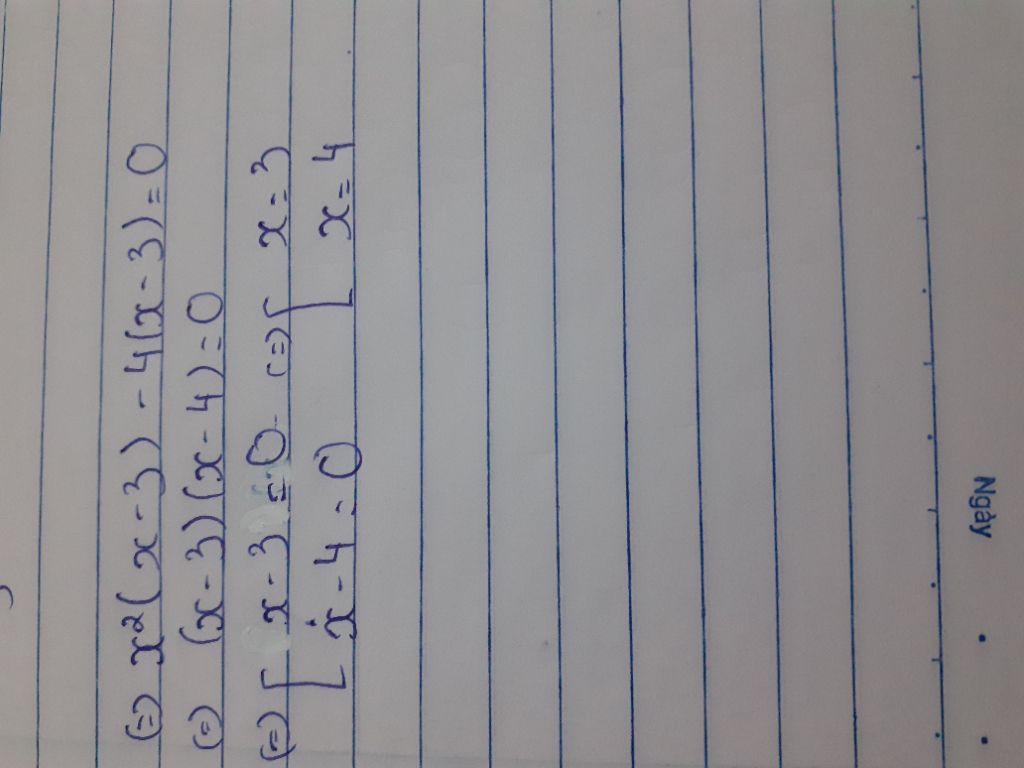 (=) x²(x-3) - 4(x-3)=0
(=) (x-3)(x-4)=0
(=) [ x-3=0 (=) [ x=3
x-4=0 x=4
Ngày